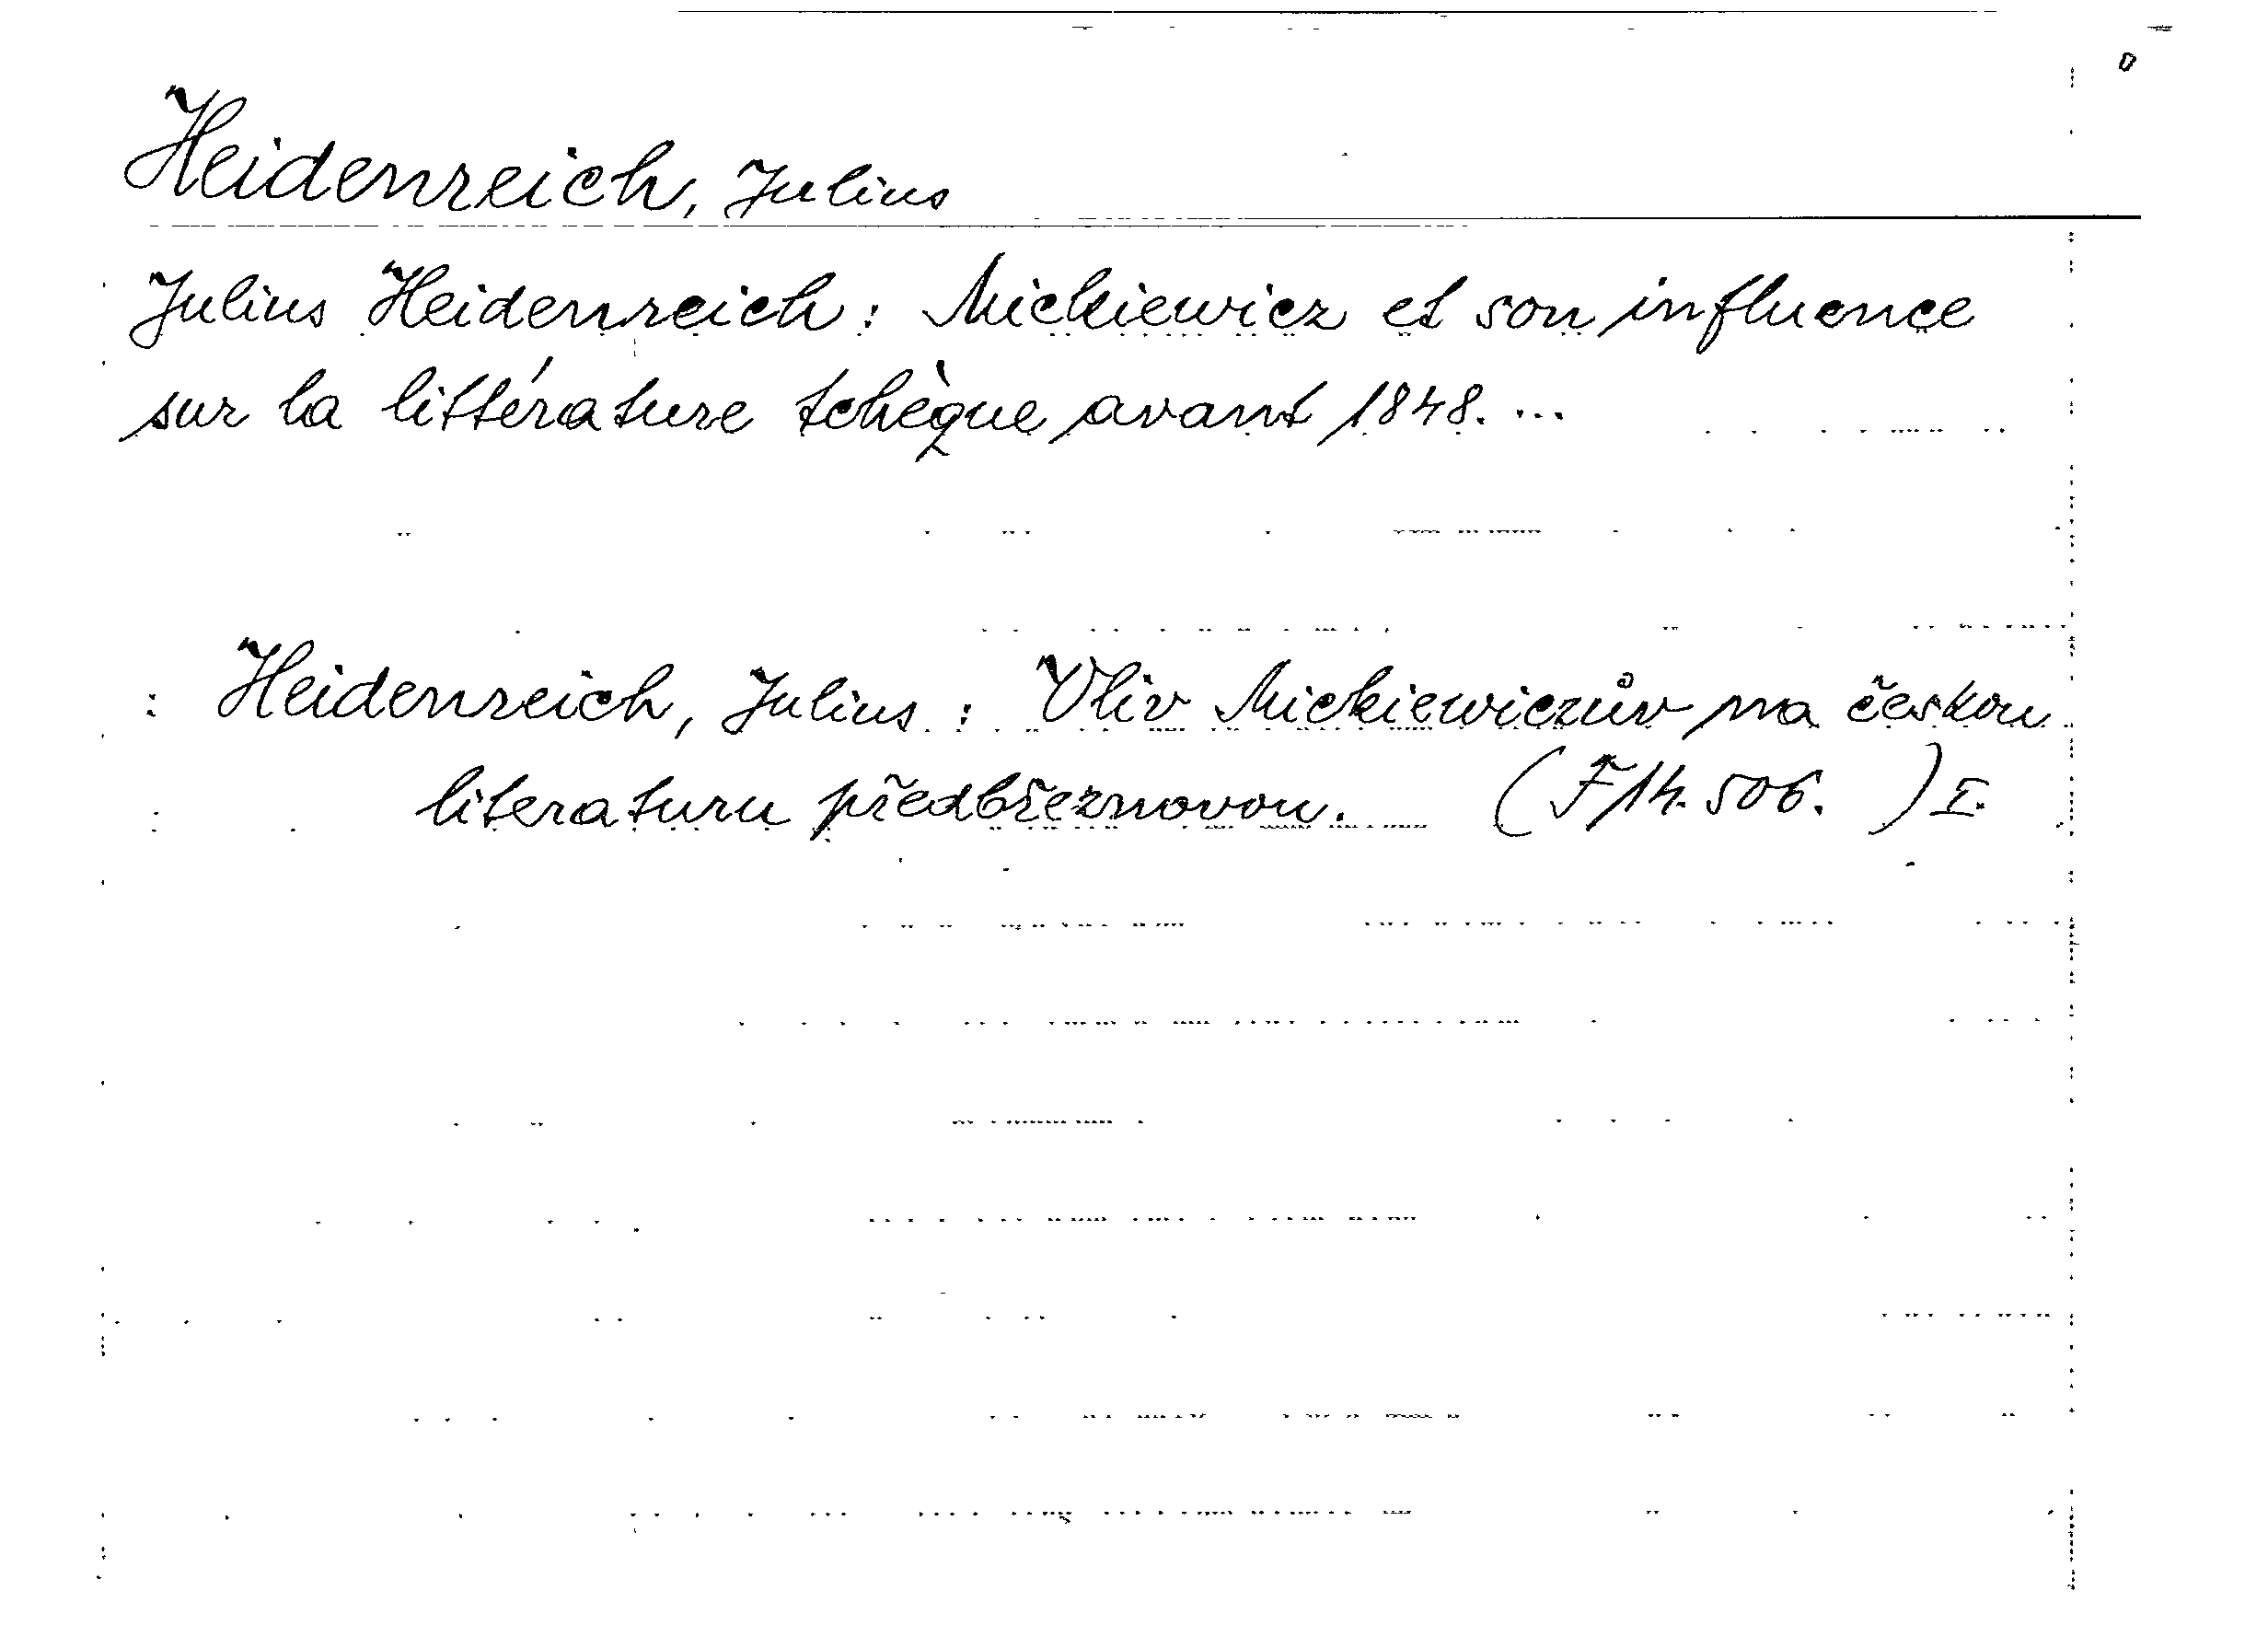 Heidenreich, Julius
Julius Heidenreich: Mickiewicz et son influence
sur la littérature tchèque avant 1848. ...
Heidenreich, Julius: Vliv Mickiewiczův na českou
literaturu předbřeznovou. (F 14.506. ) I.